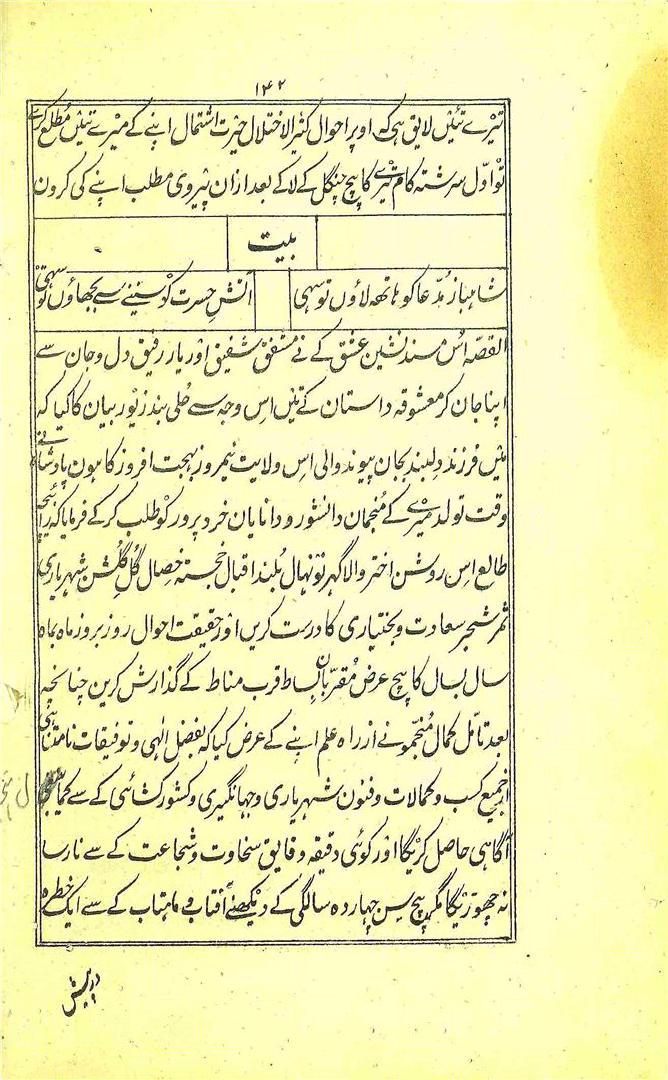 ۱۴۲
تیرے تئیں لایق ہی کہ اوپر احوال کثیر الاختلال حیرت اشتمال اپنے کے میرے تئیں مطلع کرے
تو اوّل سر رشتہ کام تیرے کا بیچ چنگل کے لا کے بعد ازان پیروی مطلب اپنے کی کرون
بیت
شاہباز مُدّعا کو ہاتھہ لاؤں تو سہی
آتشِ حسرت کو سینے سے بجھاؤں تو سہی
القصّہ اُس مسند نشین عشق کے نے مشفق شفیق اور یار رفیق دل و جان سے
اپنا جان کر معشوقہ داستان کے تئیں اس وجہ سے حُلی بند زیور بیان کا کیا کہ
میں فرزند دلبند بجان پیوند والی اس ولایت نیمروز بہجت افروز کا ہون پادشاہ نے
وقت تولد میرے کے مُنجمان دانشور و دانایان خرد پرور کو طلب کر کے فرمایا کہ زائچہ
طالع اس روشن اختر والا گہر نونہال بُلند اقبال خجستہ خصال گُلِ گلشن شہریاری
ثمر شجر سعادت و بختیاری کا درست کریں اور حقیقت احوال روز بروز ماہ بماہ
سال بسال کا بیچ عرض مُقرّبان بساط قرب مناط کے گذارش کرین چنانچہ
بعد تامّل کمال مُنجّموں نے از راہ علم اپنے کے عرض کیا کہ بفضل الٰہی و توفیقات نامتناہی
از جمیع کسب و کمالات و فنون شہریاری و جہانگیری و کشور کشائی کے سے کماینبغی
آگاہی حاصل کریگا اور کوئی دقیقہ دقایق سخاوت و شجاعت کے سے نارسا
نہ چھوڑیگا مگر بیچ سن چہاردہ سالگی کے دیکھنے آفتاب و ماہتاب کے سے ایک خطرہ
درپیش